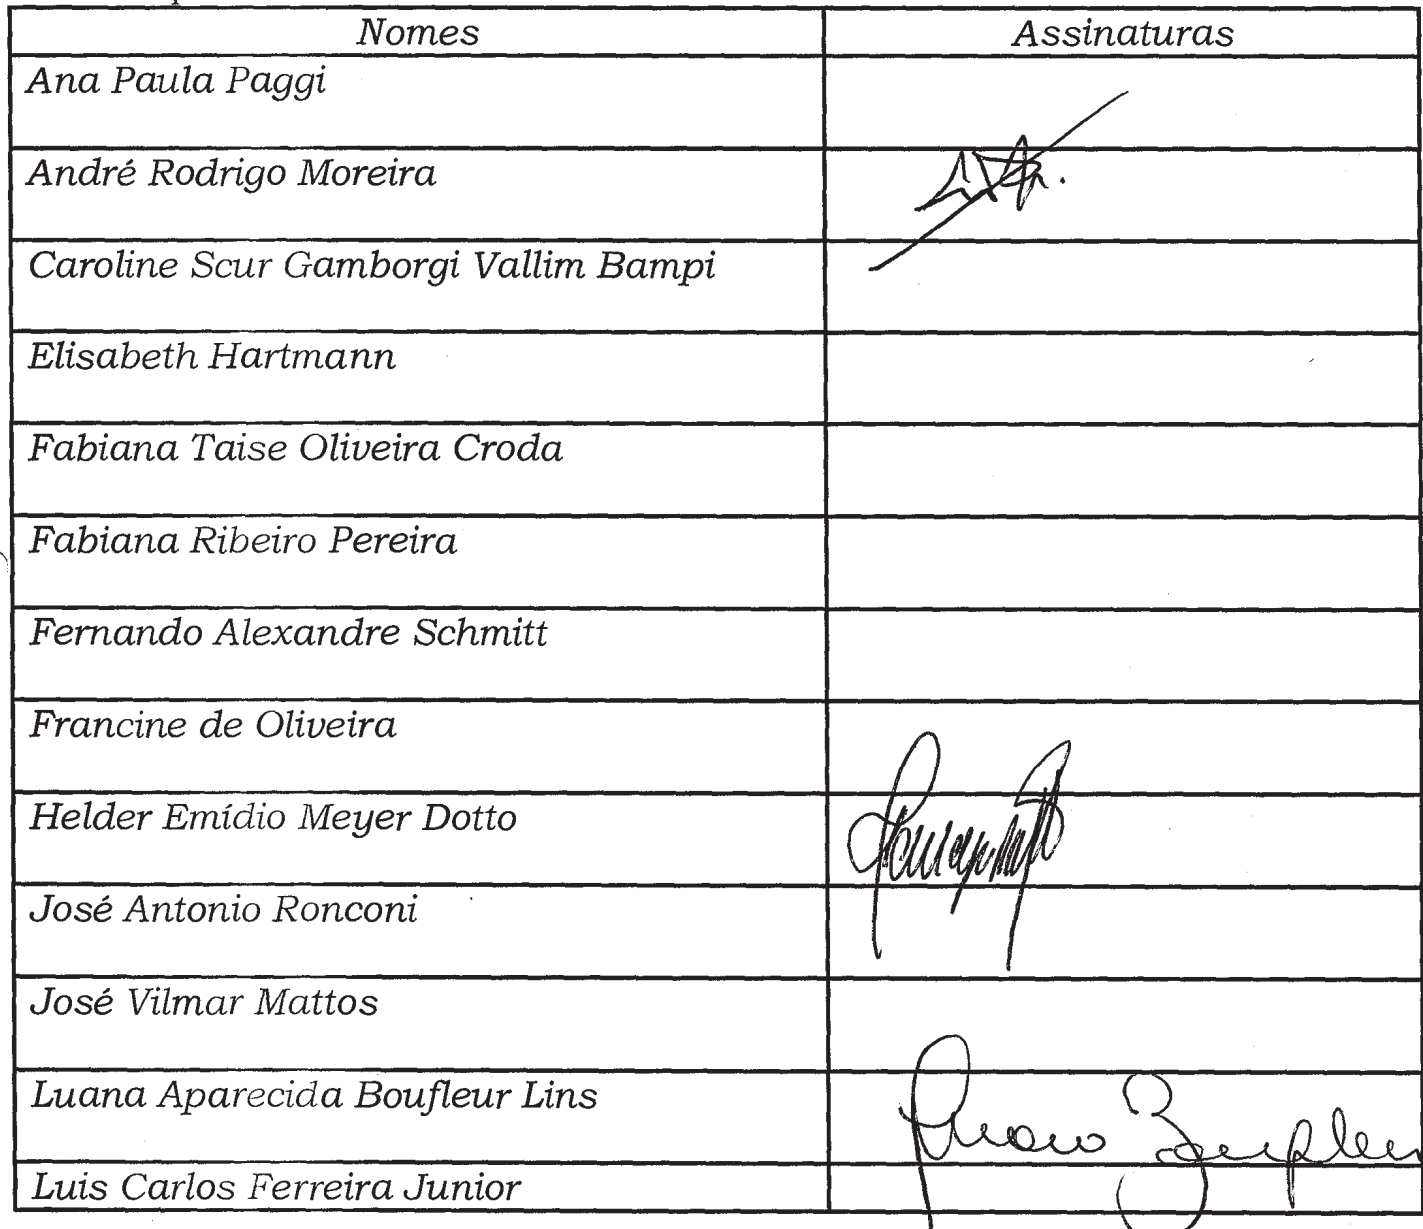 Nomes Assinaturas
Ana Paula Paggi
André Rodrigo Moreira
Caroline Scur Gamborgi Vallim Bampi
Elisabeth Hartmann
Fabiana Taise Oliveira Croda
Fabiana Ribeiro Pereira
Fernando Alexandre Schmitt
Francine de Oliveira
Helder Emídio Meyer Dotto
José Antonio Ronconi
José Vilmar Mattos
Luana Aparecida Boufleur Lins
Luis Carlos Ferreira Junior